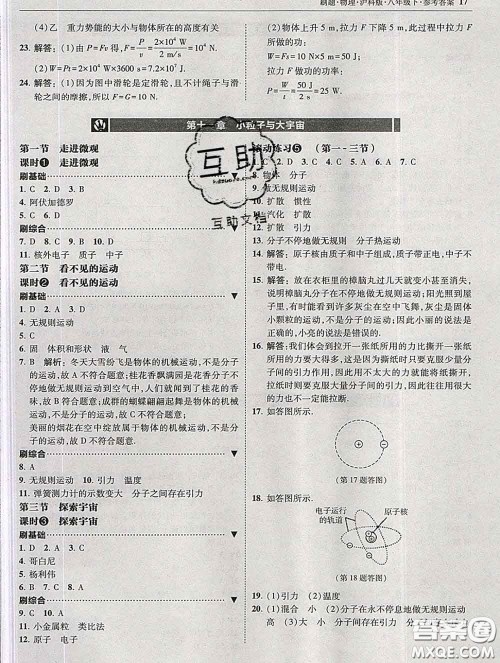 刷题·物理·沪科版·八年级下·参考答案 17
(4)乙 重力势能的大小与物体所在的高度有关
23. 解答：(1)由P=Fv得，F=P/v=2×10⁴ W/2 m/s=1×10⁴ N
(2)W=Pt=2×10⁴ W×3600 s=7.2×10⁷ J
24. 解答：(1)因为图中滑轮是定滑轮，且不计绳子与滑
轮之间的摩擦，所以F=G=10 N.
拉力F做的功为：
W=Fs=10 N×5 m=50 J
拉力F做功的功率：
第十一章 小粒子与大宇宙
第一节 走进微观
课时1 走进微观
刷基础
1. C 2. D 3. A
4. 阿伏加德罗
5. C 6. A
刷综合
7. D 8. C 9. B 10. C
11. 核外电子 质子 中子
第二节 看不见的运动
课时2 看不见的运动
刷基础
1. D 2. C 3. D
4. 无规则运动
5. C
6. 固 体积和形状 液 气
7. B 解析：冬天大雪纷飞是物体的机械运动，不是分子
的运动，故A不符合题意；桂花香飘满园是花香分子不
停地做无规则运动到空气中，人们就闻到了桂花的香
味，故B符合题意；成群的蝴蝶翩翩起舞是物体的机械
运动，不是分子的运动，故C不符合题意；
美丽的烟花在空中绽放属于物体的机械运动，不是分
子的运动，故D不符合题意.
刷综合
8. A
9. D 10. 无规则运动 引力 温度
11. 弹簧测力计的示数变大 分子之间存在引力
第三节 探索宇宙
课时3 探索宇宙
刷基础
1. D 2. A 3. C
4. 哥白尼
5. 杨利伟
6. B 7. A 8. D
刷综合
9. C 10. A
11. 小金属粒 类比法
12. 原子 电子
滚动练习5 (第一~三节)
8. 物体 分子
9. 做无规则运动
10. 扩散 惯性
11. 汽化 扩散
12. 扩散 引力
13. 分子不停地做无规则 分子热运动
14. 解答：原子核由质子和中子组成，质子与中子之间有引力.
15. 解答：放在衣柜里的樟脑丸过几天就变小甚至消失，
说明樟脑丸分子在不停地做无规则运动；而扫地时
能看到许多灰尘在空中飞舞，是因为灰尘是固体
小颗粒的运动，不是分子的运动.因此小丽的说法是
正确的，小明的说法是错误的.
16. 解答：我们体会到拉开一张纸所用的力比撕开一张纸
所用的力大得多，是因为撕纸时只要克服少量分子
间的引力作用，因此用较小的力，就很容易能撕开，
拉纸时则要克服大量分子间的引力，因此往往用很大
的力也不一定能拉断.
17. 如答图所示.
(第17题答图)
18. 如答图所示.
电子运行
的轨道
原子核
(第18题答图)
19. (1)引力 (2)温度
20. (1)混合 小 (2)分子在永不停息地做无规则运动
高 (3)大 小 分子之间存在引力
互助
互助文档
MXQE.COM